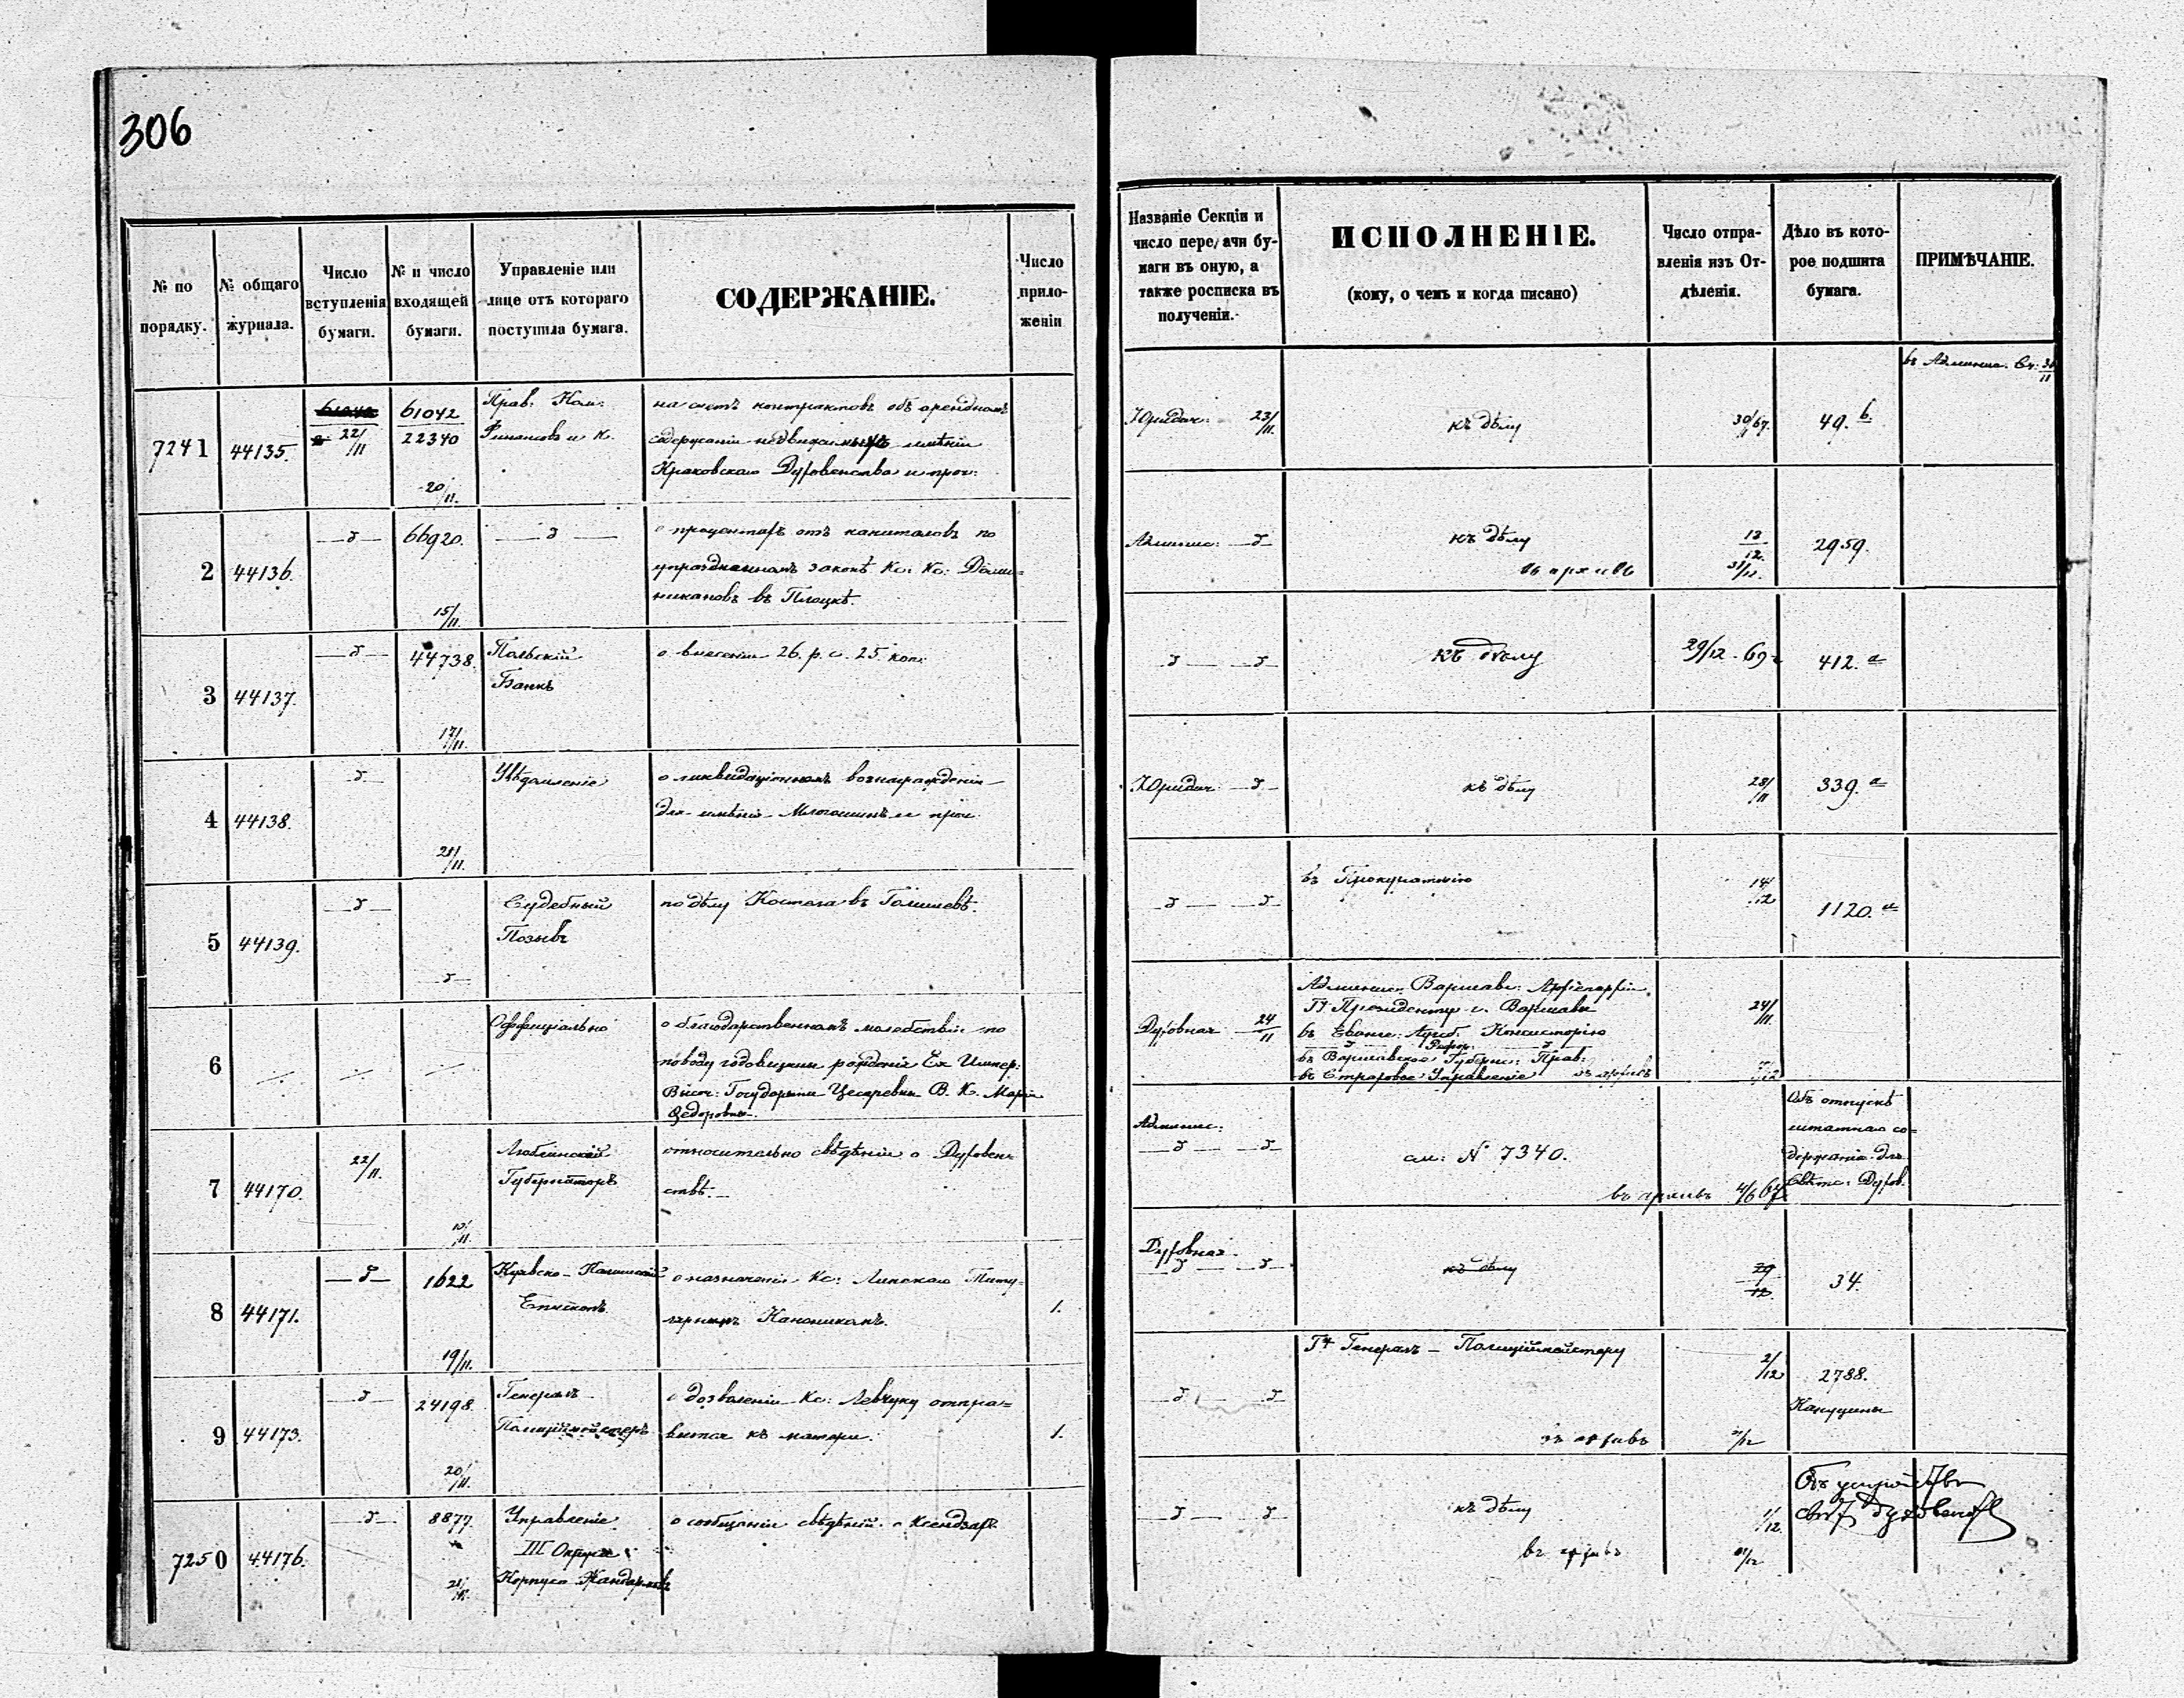 306
№ по порядку.
№ общаго журнала.
Число вступленія бумаги.
№ и число входящей бумаги.
Управленіе или лице отъ котораго поступила бумага.
СОДЕРЖАНІЕ.
Число приложеній
Названіе Секціи и число передачи бумаги въ оную, а также росписка въ полученіи.
ИСПОЛНЕНІЕ.
(кому, о чемъ и когда писано)
Число отправленія изъ Отдѣленія.
Дѣло въ которое подшита бумага.
ПРИМѢЧАНІЕ.
7241
44135.
22/11
61042
22340
20/11.
Прав. Ком:
Финансовъ и К.
на счетъ контрактовъ объ арендномъ
содержаніи недвижимыхъ имѣній
Краковскаго Духовенства и проч:
Юридич: 23/11.
къ дѣлу
30/11 67.
49. b.
въ Админис.
2
44136.
—д—
66920.
15/11.
—д—
о процентахъ отъ капиталовъ по
упраздненномъ законѣ Кс: Кс: Доми=
никановъ въ Плоцкѣ.
Админис: —д—
къ дѣлу
въ архивъ
12/12.
31/12.
2959.
3
44137.
—д—
44738.
17/11.
Польскій
Банкъ
о внесеніи 26. р. с. 25 коп:
—д— —д—
къ дѣлу
29/12 - 69
412. a
4
44138.
—д—
21/11.
Увѣдомленіе
о ликвидаціонномъ вознагражденіи
для имѣнія и проч:
Юридич: —д—
къ дѣлу
28/11
339. a
5
44139.
—д—
—д—
Судебный
Позывъ
по дѣлу Костела въ
—д— —д—
въ Прокураторію
14/12
1120. a
6
Оффиціально
о благодарственномъ молебствіи по
поводу годовщины рожденія Ея Импер:
Высоч: Государыни Цесаревны В. К. Маріи
Федоровны.
Духовная 24/11
Админис: Варшавс: Архіепархіи
Гну Президенту г. Варшавы
въ Еванге: Аугсб: Консисторію
—д— Реформ: —д—
въ Варшавское Губернс: Прав:
въ Страховое Управленіе въ архивъ
24/11.
7
44170.
22/11.
10/11.
Люблинскій
Губернаторъ
относительно свѣдѣній о Духовен=
ствѣ.
Админис:
—д— —д—
см: № 7340.
въ архивъ 4/6 67
Объ отпускѣ
штатнаго со=
держанія для
Свѣтс: Духов.
8
44171.
—д—
1622
19/11.
Куявско-Калишскій
Епископъ.
о назначеніи Кс: Липскаго Титу=
лярнымъ Каноникомъ.
1.
Духовная.
—д— —д—
къ дѣлу
29/12.
34.
9
44173.
—д—
24198.
20/11.
Генералъ
Полиціймейстеръ
о дозволеніи Кс: Левчуку отпра=
виться къ матери.
1.
—д— —д—
Гну Генералъ-Полиціймейстеру
въ архивъ
2/12
31/12
2788.
Капуцины
7250
44176.
—д—
8877.
21/11.
Управленіе
III Округа
Корпуса Жандармовъ
о сообщеніи свѣдѣній о Ксендзахъ.
—д— —д—
къ дѣлу
въ архивъ
1/12.
31/12
Объ устройствѣ
свѣт. духовенств.